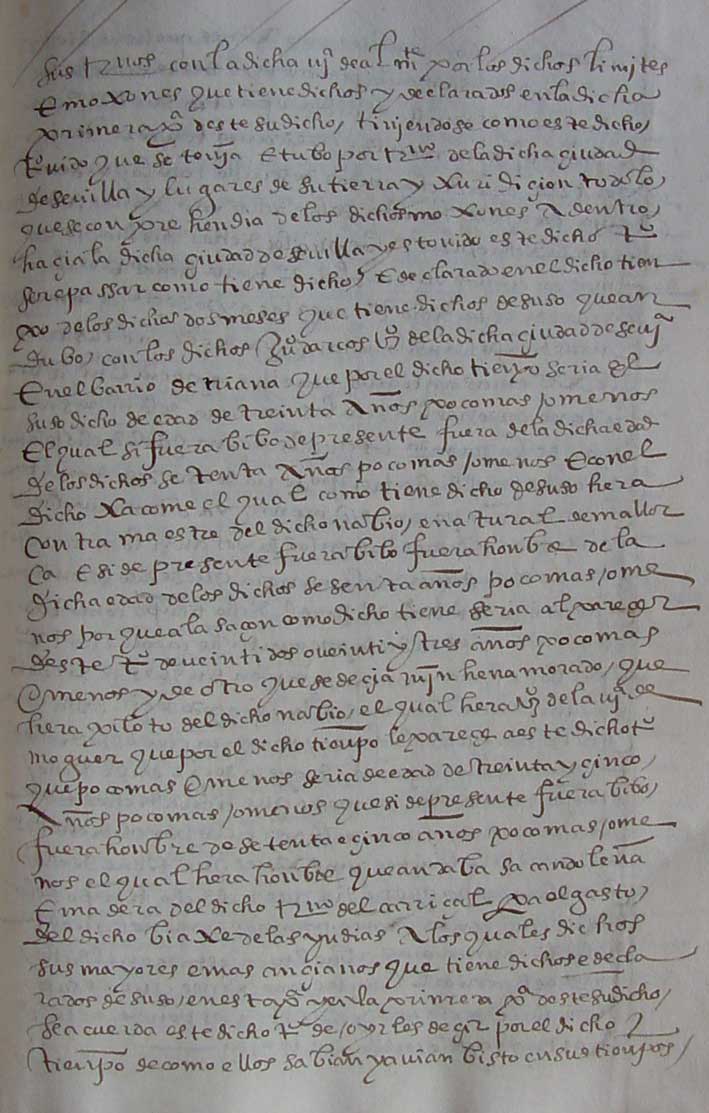 sus trnos con la dicha uja de al mte por los dichos limjtes
e moxones que tiene dichos y declarados en la dicha
primera pa deste su dicho, tinjendose como este dicho,
to vido que se tenja e tubo por trno de la dicha ciudad
de seuilla y lugares de su tierra y juridicion todo lo,
que se conprehendia de los dichos moxones adentro,
hacia la dicha ciudad de seuilla y esto vido este dicho to
ser e passar como tiene dicho, e declarado en el dicho tien
po de los dichos dos meses que tiene dichos de suso que an
dubo, con los dichos vo de la dicha ciudad de seuja
en el barrio de triana que por el dicho tienpo seria el
suso dicho de edad de treinta años poco mas / o menos
el qual si fuera bibo de presente fuera de la dicha edad
de los dichos setenta años poco mas / o menos e con el
dicho xacome el qual como tiene dicho de suso hera
contramaestre del dicho nabio, e natural de mallor
ca e si de presente fuera bibo fuera honbre de la
dicha edad de los dichos sesenta años poco mas / o me
nos porque a la saçon como dicho tiene seria al parecer
deste to de veinti dos o veinti y tres años poco mas
o menos y de otro que se decia juan henamorado, que
hera piloto del dicho nabio, el qual hera vo de la uja de
moguer que por el dicho tienpo le parece a este dicho to
que poco mas o menos seria de edad de treinta y cinco,
años poco mas / o menos que si de presente fuera bibo,
fuera honbre de setenta e cinco años poco mas / o me
nos el qual hera honbre que andaba sacando leña
e madera del dicho trno del carriçal pa el gasto,
del dicho biaxe de las yndias a los quales dichos
sus mayores e mas ancianos que tiene dichos e decla
rados de suso, en esta pa y en la primera pa deste su dicho,
se acuerda este dicho to de / oyrles decir por el dicho
tienpo de como ellos sabian y avian bisto en sus tienpos,